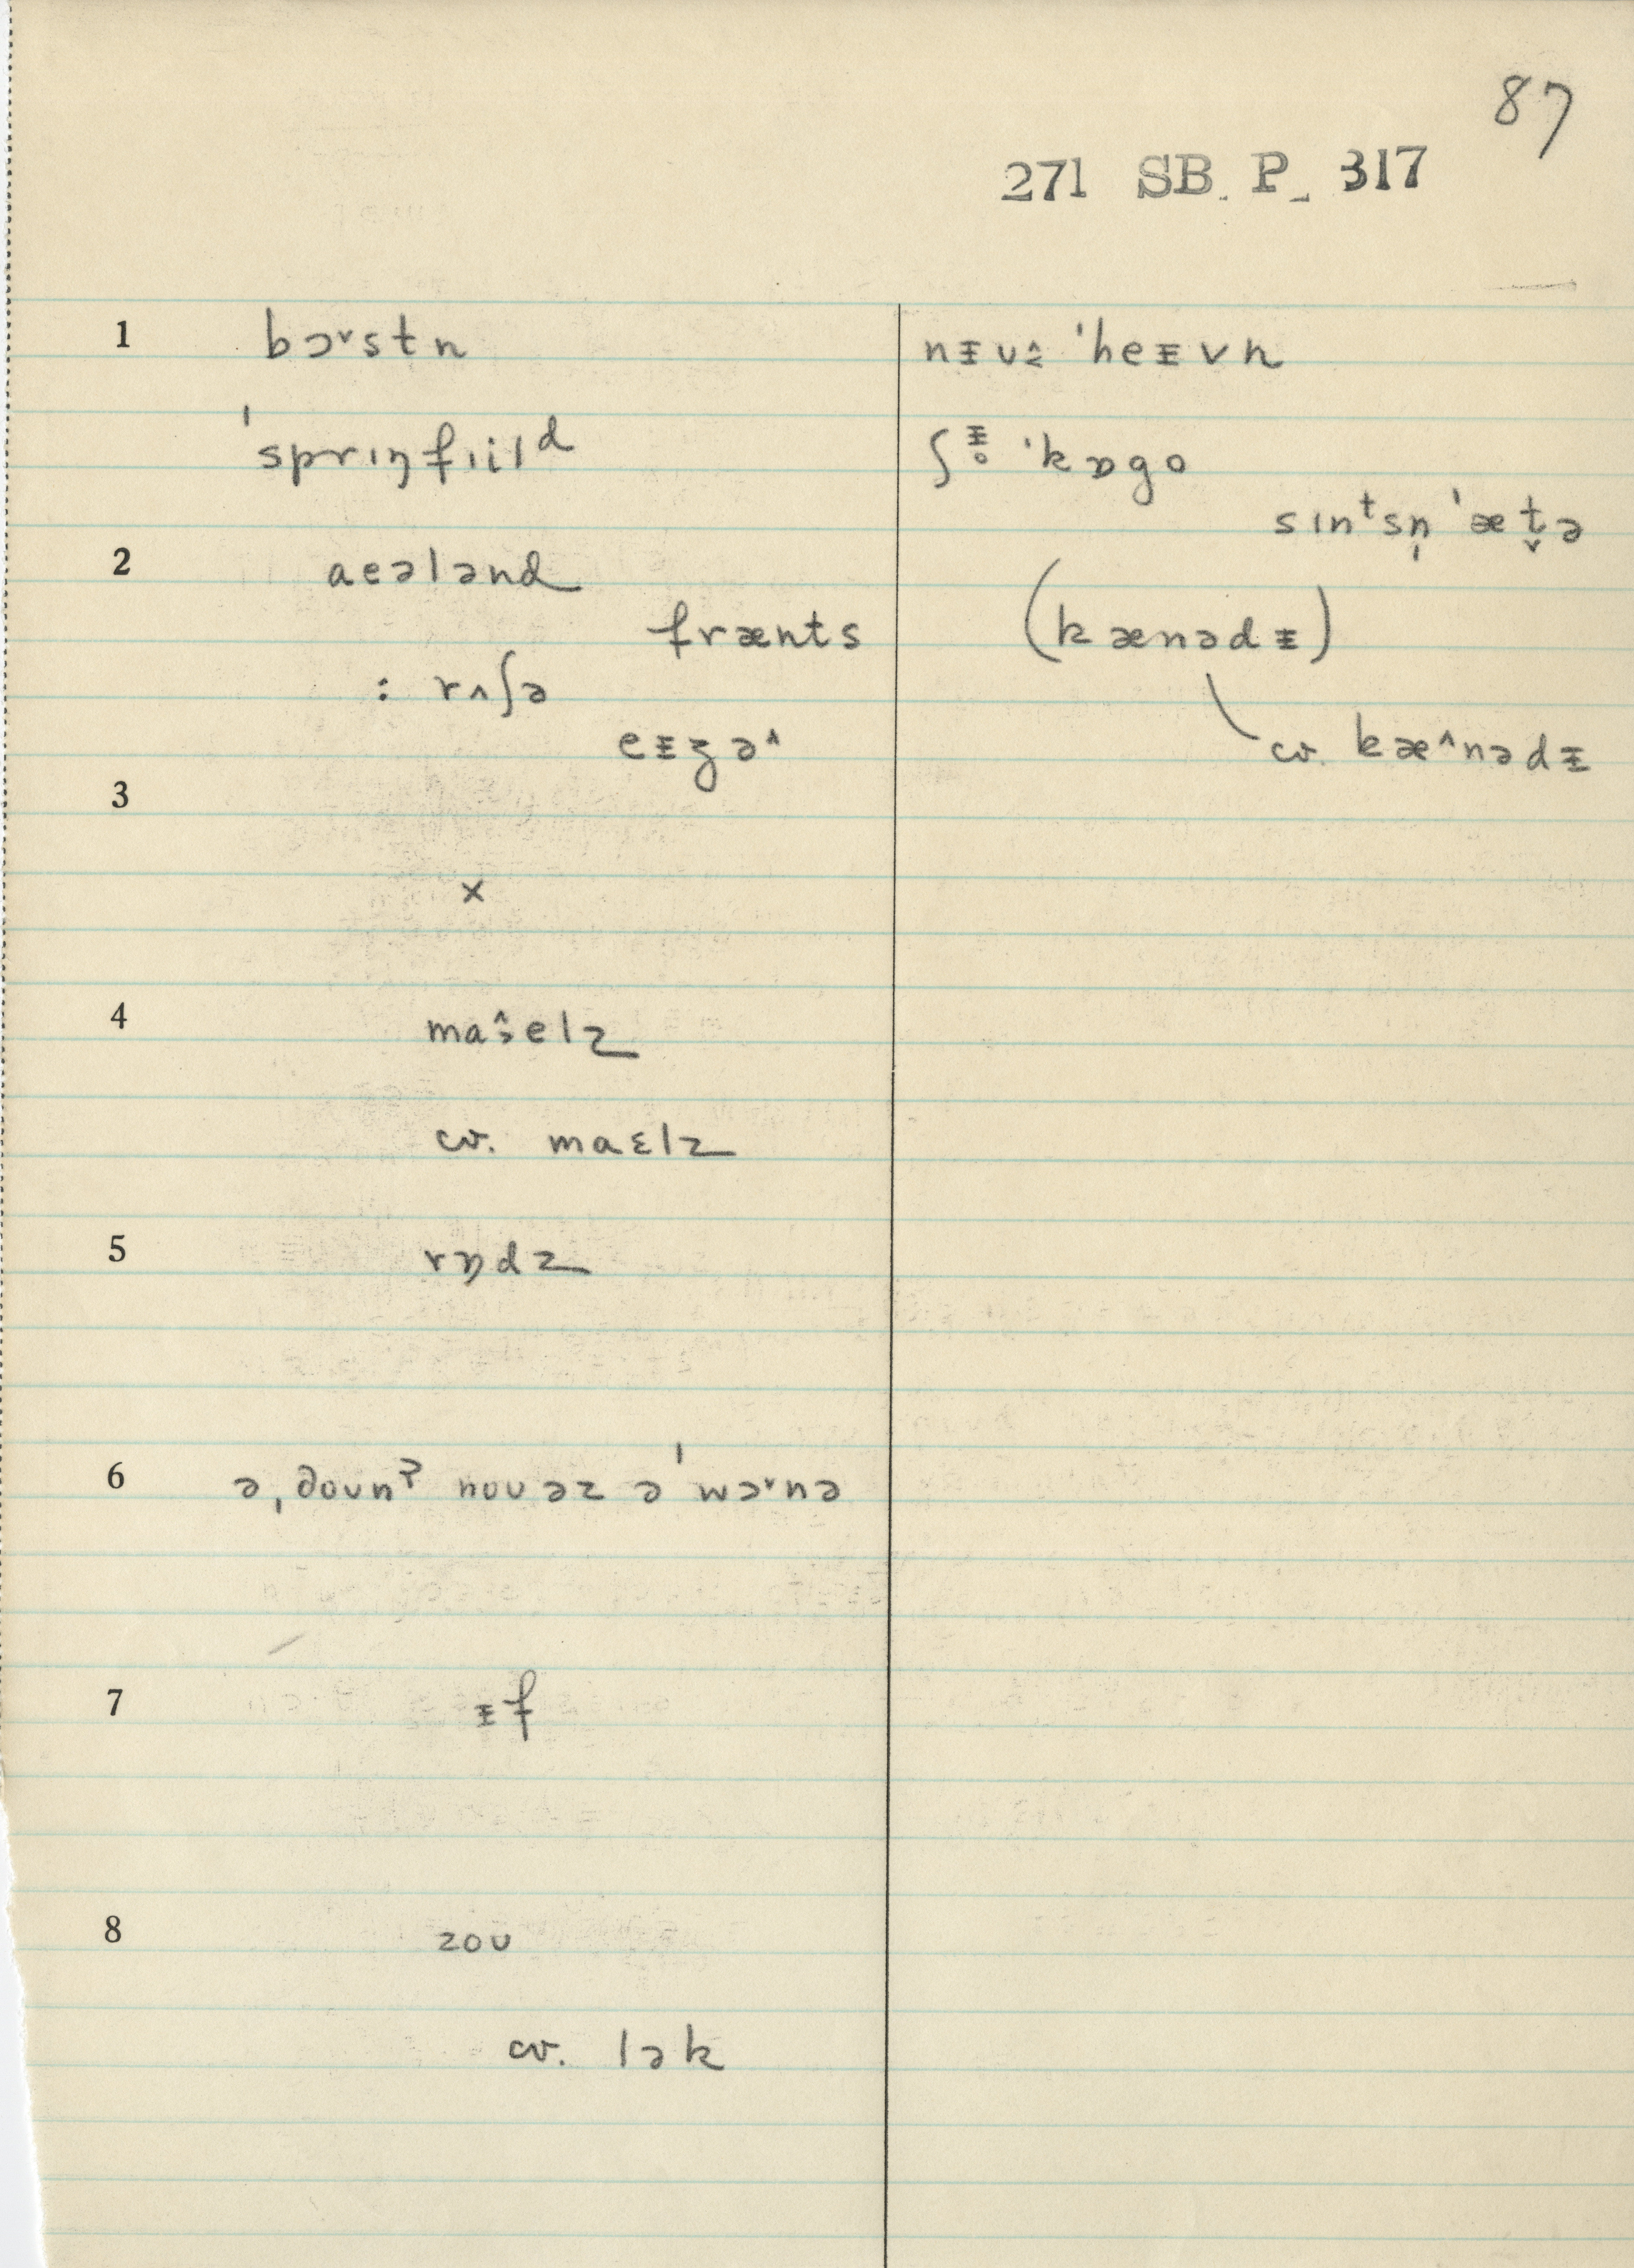 87
271 SB. P_ 317
1 bɔ˅stn
ˈsprɪŋfɪild
2 aeələnd
frænts
: rʌʃə
eᵻʒə^
3
×
4 maɜ̂elz
cv. maɛlz
5 rɒdz
6 ə,doun? nouəz əˈwɔ˅nə
7 ᵻf
8 zou
cv. lək
nᵻuʉ̂ ˈheᵻvn
ʃᵻ̥ ˈkɒgo
sɪntsn̩ˈæt̬ə
(kænədᵻ)
cv. kæ^nədᵻ